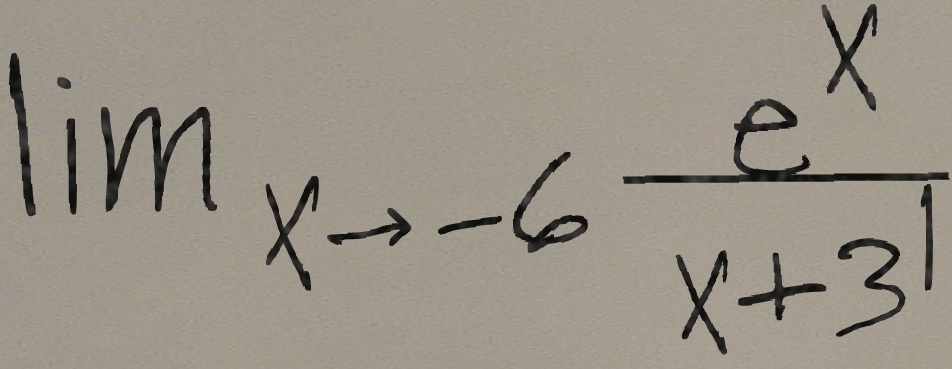 lim x→-6 e^x / x+3^1